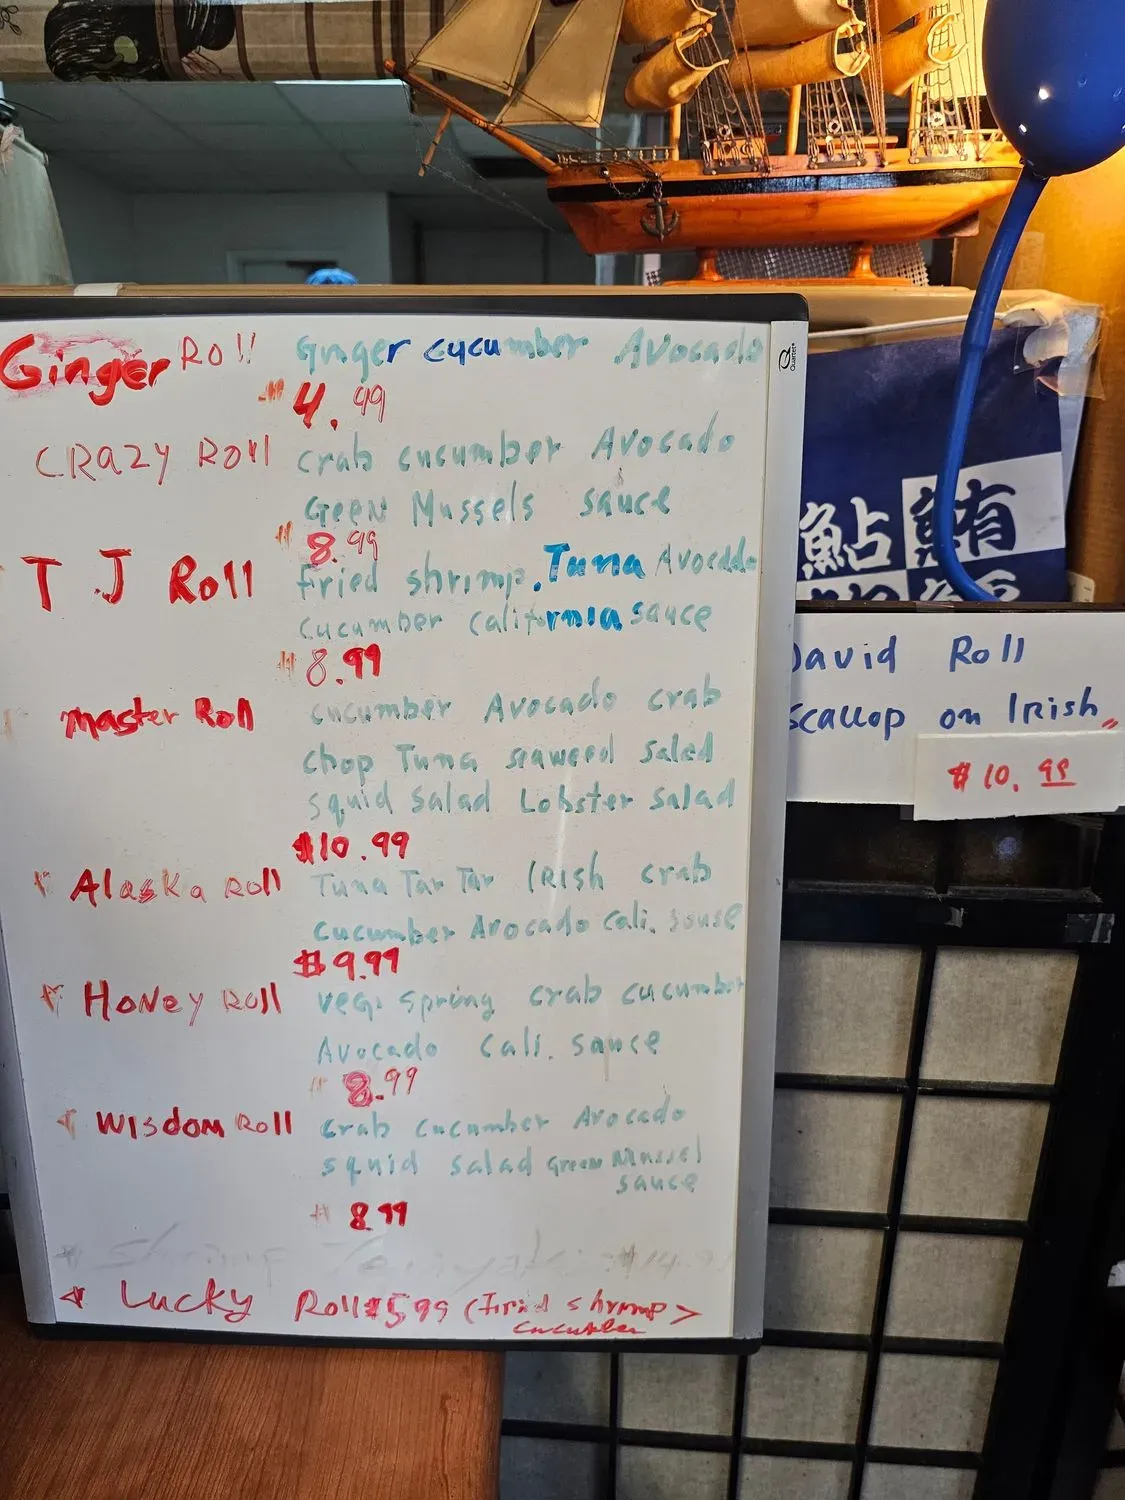 Ginger Roll Ginger cucumber Avocado
$4.99
CRAZY Roll crab cucumber Avocado
Green Mussels sauce
$8.99
T J Roll Fried shrimp, Tuna Avocado
cucumber California sauce
$8.99
master Roll cucumber Avocado crab
chop Tuna seaweed salad
squid salad Lobster salad
$10.99
Alaska Roll Tuna Tar Tar IRISH crab
cucumber Avocado cali. souse
$9.99
Honey Roll vegi spring crab cucumber
Avocado Cali. sauce
$8.99
WISDOM Roll crab cucumber Avocado
squid salad Green Mussel
sauce
$8.99
Shrimp Teriyaki $14.9
Lucky Roll $5.99 (Fried shrimp >
cucumber
Quartet
鮎
鮪
David Roll
scallop on IRish
$10.99